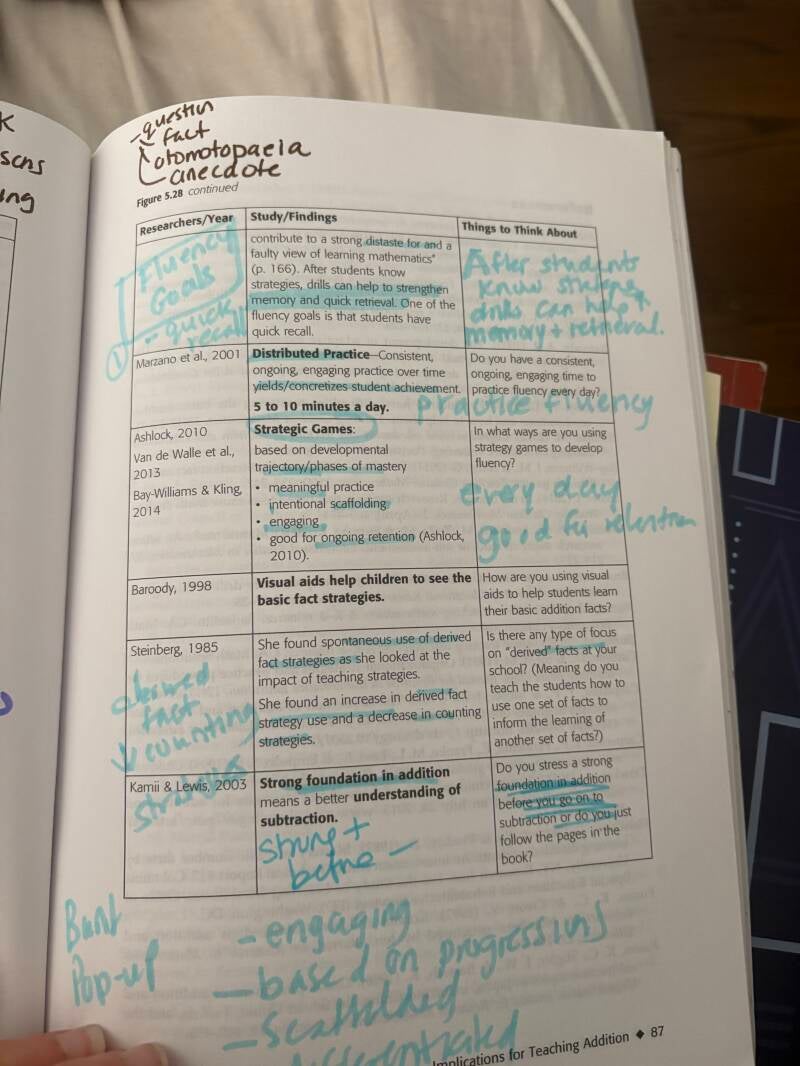 K
scns
ing
- question
- fact
otomotopaeia
anecdote
Figure 5.28 continued
Researchers/Year
Study/Findings
Things to Think About
Fluency
Goals
- quick
recall
1
contribute to a strong distaste for and a
faulty view of learning mathematics"
(p. 166). After students know
strategies, drills can help to strengthen
memory and quick retrieval. One of the
fluency goals is that students have
quick recall.
After students
know strategies
drills can help
memory + retrieval.
Marzano et al., 2001
Distributed Practice—Consistent,
ongoing, engaging practice over time
yields/concretizes student achievement.
5 to 10 minutes a day.
Do you have a consistent,
ongoing, engaging time to
practice fluency every day?
practice fluency
Ashlock, 2010
Van de Walle et al.,
2013
Bay-Williams & Kling,
2014
Strategic Games:
based on developmental
trajectory/phases of mastery
• meaningful practice
• intentional scaffolding
• engaging
• good for ongoing retention (Ashlock,
2010).
In what ways are you using
strategy games to develop
fluency?
every day
good for retention
Baroody, 1998
Visual aids help children to see the
basic fact strategies.
How are you using visual
aids to help students learn
their basic addition facts?
Steinberg, 1985
derived
fact
↓ counting
strategies
She found spontaneous use of derived
fact strategies as she looked at the
impact of teaching strategies.
She found an increase in derived fact
strategy use and a decrease in counting
strategies.
Is there any type of focus
on "derived" facts at your
school? (Meaning do you
teach the students how to
use one set of facts to
inform the learning of
another set of facts?)
Kamii & Lewis, 2003
Strong foundation in addition
means a better understanding of
subtraction.
strong +
before -
Do you stress a strong
foundation in addition
before you go on to
subtraction or do you just
follow the pages in the
book?
Pop-up
- engaging
- based on progressions
- scaffolded
differentiated
Implications for Teaching Addition ◆ 87